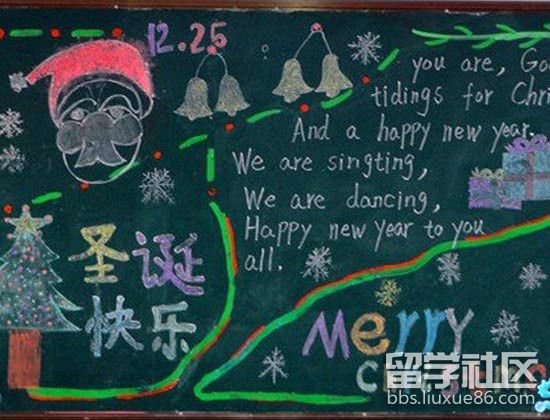 12.25
you are,
tidings for
And a happy new year.
We are singting,
We are dancing,
Happy new year to you
all.
圣诞
快乐
Merry
留学社区
bbs.liuxue86.com